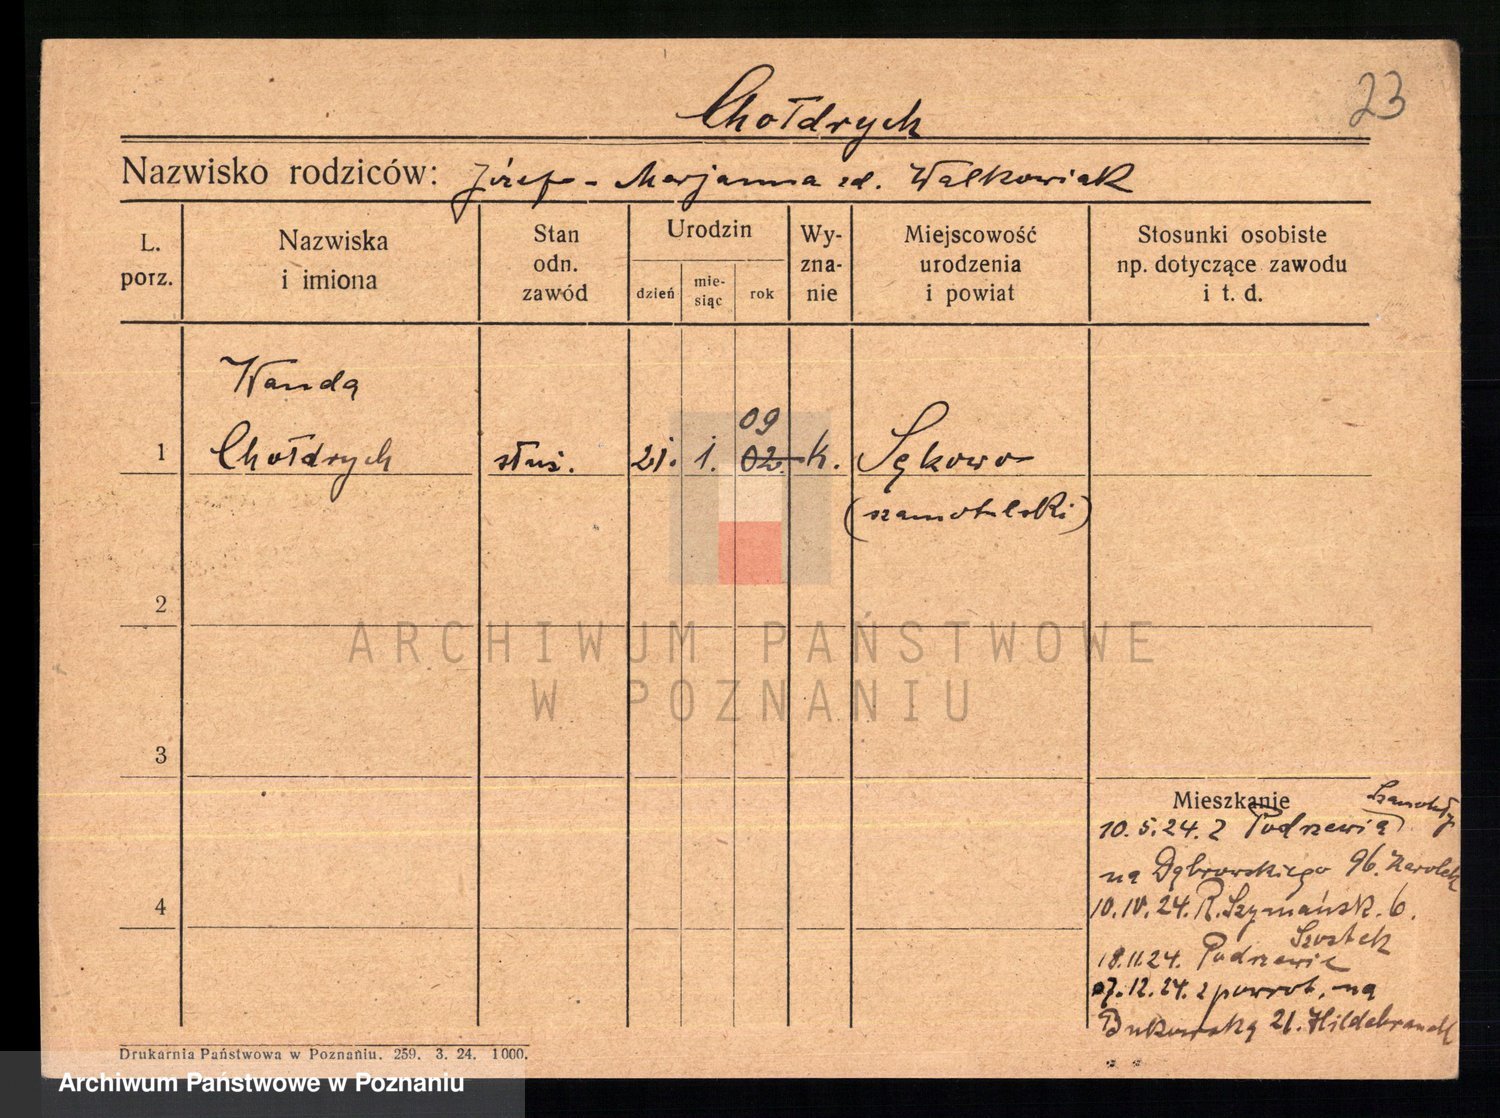 23
Chołdrych
Nazwisko rodziców: Józef - Marjanna zd. Walkowiak
L. porz.
Nazwiska i imiona
Stan odn. zawód
Urodzin
dzień
mie-siąc
rok
Wy-zna-nie
Miejscowość urodzenia i powiat
Stosunki osobiste np. dotyczące zawodu i t. d.
Wanda
09
1 Chołdrych służ. 21. 1. 02. k. Sękowo
(szamotulski)
2
3
4
ARCHIWUM PAŃSTWOWE
W POZNANIU
Mieszkanie
Szamotuły
10.5.24. z Podrzewia
na Dąbrowskiego 96.
10.IV.24. R. Szymańsk. 6.
Szostek
18.11.24. Podrzewie
07.12.24. z powrot. na
Bukowską 21. Hildebrandt
Drukarnia Państwowa w Poznaniu. 259. 3. 24. 1000.
Archiwum Państwowe w Poznaniu